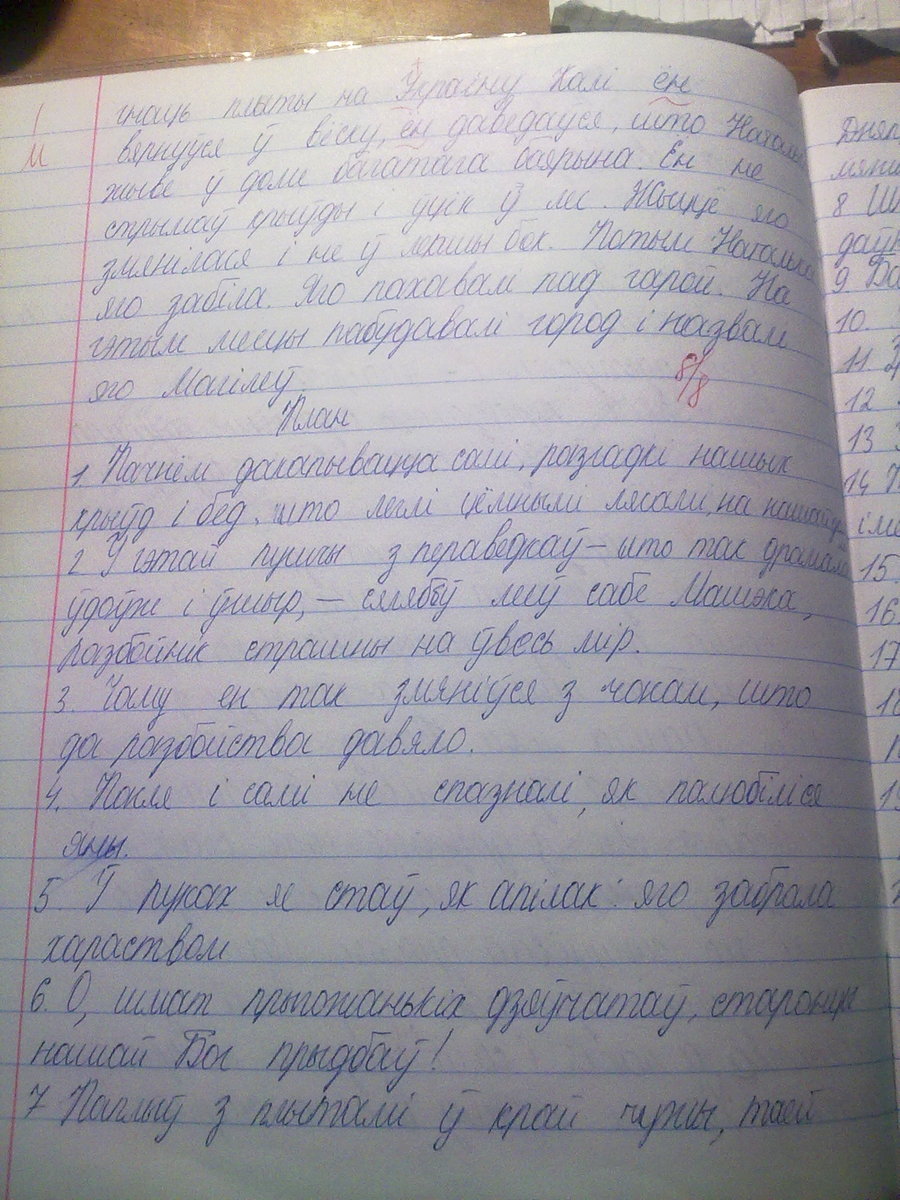 гнаць плыты на Украіну Калі ён
вярнуўся ў вёску, ён даведаўся, што Наталька
жыве ў доме багатага баярына. Ён не
стрымаў крыўды і уцік ў лес. Жыццё яго
змянілася і не ў лепшы бок. Потым Наталька
яго забіла. Яго пахавалі пад гарой. На
гэтым месцы пабудавалі город і назвалі
яго Магілеў.
8/8
План
1. Пачнём дакапывацца самі, разгадкі нашых
крыўд і бед, што леглі цёмнымі лясамі, на
2 У гэтай пушчы з пераведкаў – што так драмала
ўдоўж і ўшыр, – сялябву меў сабе Машэка,
разбойнік страшны на ўвесь мір.
3. Чаму ен так змяніўся з чокам, што
да разбойства давяло.
4. Покля і самі не спазналі, як палюбіліся
яны.
5. Ў руках яе стаў, як апілак: яго забрала
хараством
6. О, шмат прыгожанькіх дзяўчатаў, старонцы
нашай Бог прыдбаў!
7 Паплыў з плытамі ў край чужы, тэй
8
9
10.
11.
12
13
14
15.
16.
17